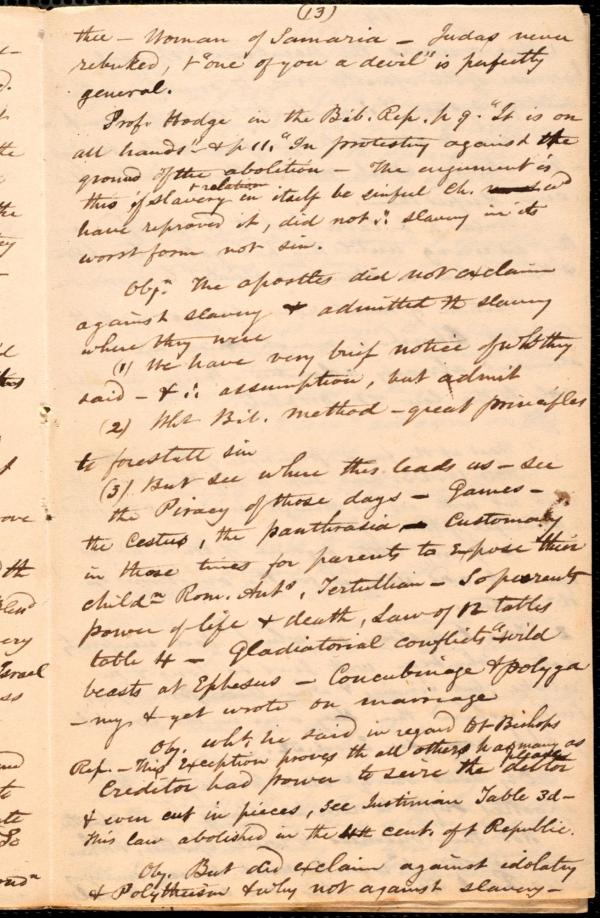 (13)
thee – Woman of Samaria – Judas never
rebuked, & "one of you a devil" is perfectly
general.
Prof. Hodge in the Bib. Rep. p 9. "It is on
all hands" – & p 11. "In protesting against the
ground of the abolition – The argument is
this if slavery & relation in itself be sinful Ch.
have reproved it, did not ∴ slavery in its
worst form not sin.
Objn. The apostles did not exclaim
against slavery & admitted th slavery
where they were
(1) We have very brief notice of wht they
said – & ∴ assumption, but admit
(2) Wht Bib. method – great principles
to forestall sin
(3) But see where this leads us – see
the Piracy of those days – Games –
the Cestus, the panthrasia – Customary
in those times for parents to expose their
childn Rom. Ants, Tertullian – So parents
power of life & death, Law of 12 tables
table 4 – Gladiatorial conflicts "wild
beasts at Ephesus – Concubinage & polyga
– my & yet wrote on marriage
Ob. wht he said in regard to Bishops
Rep. – This exception proves th all others had many as
please
Creditor had power to seize the debtor
& even cut in pieces, see Justinian Table 3d –
This law abolished in the 4th cent. of t Republic.
Ob. But did exclaim against idolatry
& Polytheism & why not against slavery –